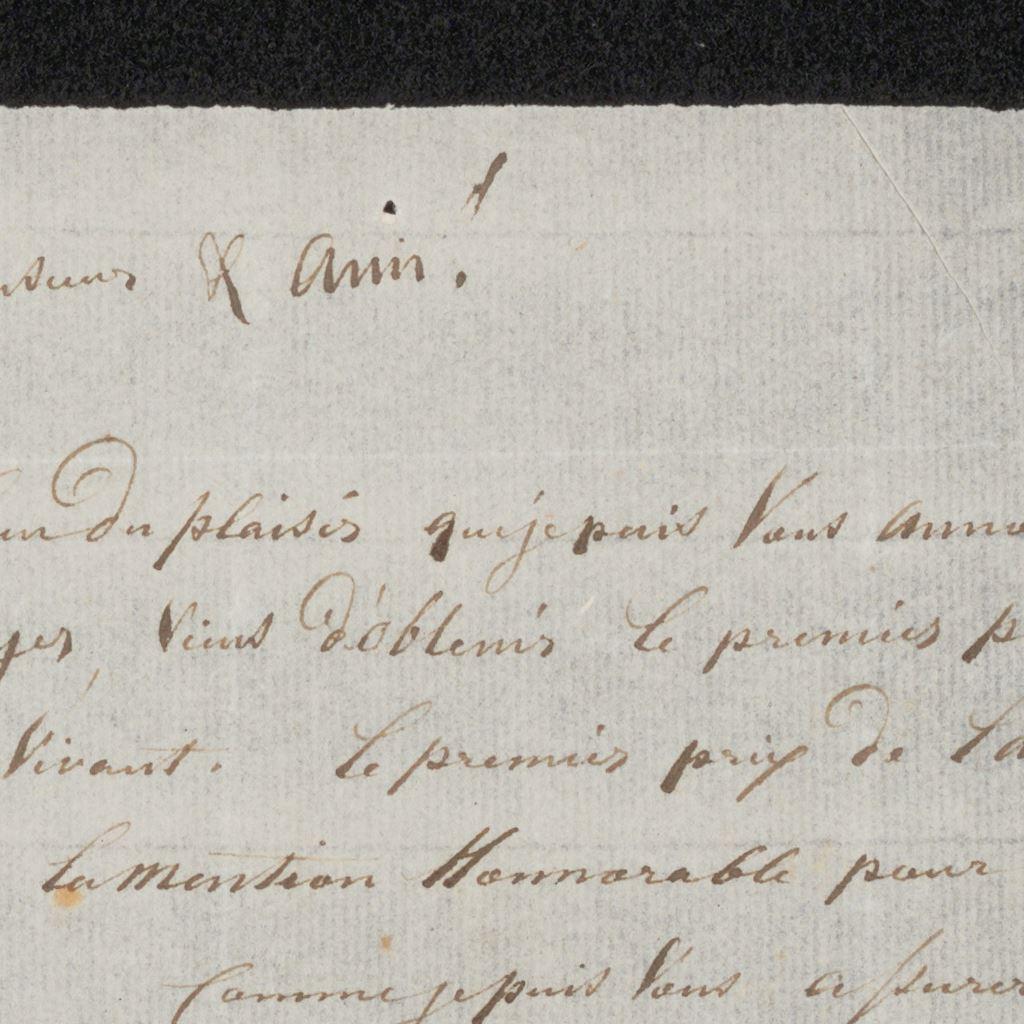 & Ami!
du plaisir que je puis Vous
Viens d'obtenir le premier
Vivant. Le premier prix de
la Mention Honnorable pour
Comme je puis Vous assurer